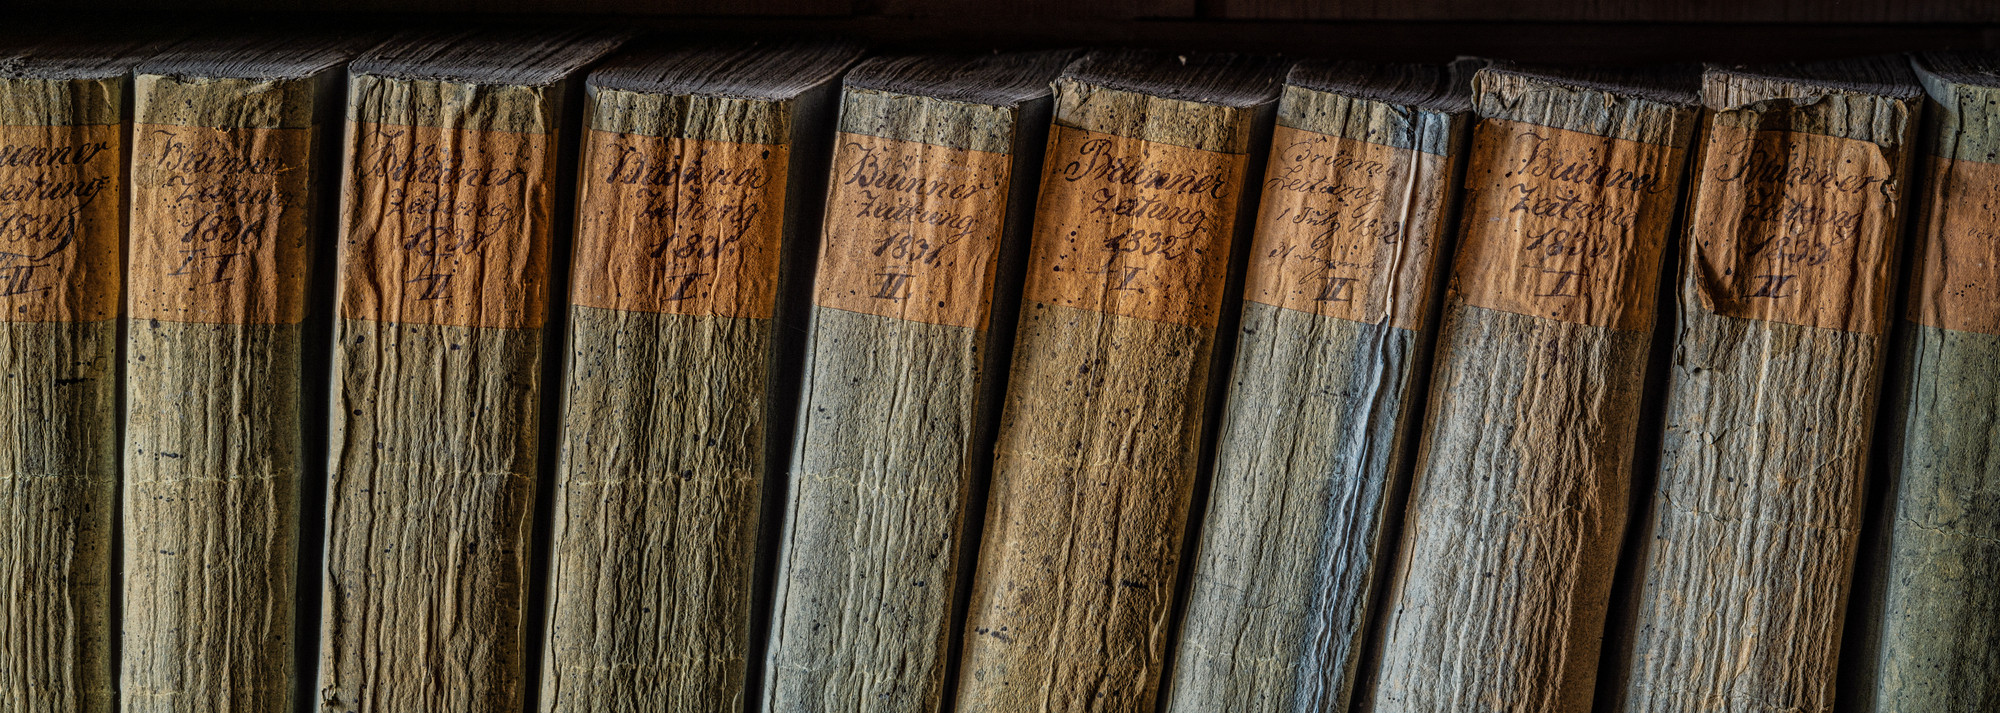 Brünner
Zeitung
1830
I
Brünner
Zeitung
1830
II
Brünner
Zeitung
1831.
I
Brünner
Zeitung
1831.
II
Brünner
Zeitung
1832
I
Zeitung
II
Brünner
Zeitung
1833.
I
Brünner
Zeitung
1833
II